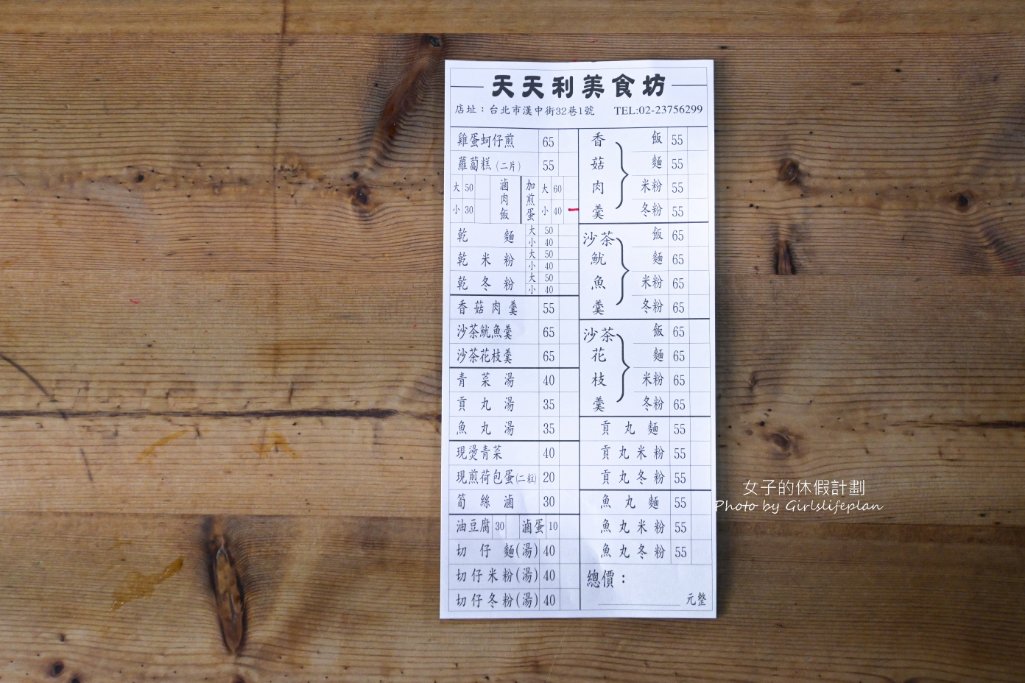 天天利美食坊
店址：台北市漢中街32巷1號 TEL:02-23756299
雞蛋蚵仔煎 65
蘿蔔糕(二片) 55
大 50 滷肉飯 加煎蛋 大 60
小 30 小 40
乾麵 大 50 小 40
乾米粉 大 50 小 40
乾冬粉 大 50 小 40
香菇肉羹 55
沙茶魷魚羹 65
沙茶花枝羹 65
青菜湯 40
貢丸湯 35
魚丸湯 35
現燙青菜 40
現煎荷包蛋(二粒) 20
筍絲滷 30
油豆腐 30 滷蛋 10
切仔麵(湯) 40
切仔米粉(湯) 40
切仔冬粉(湯) 40
香菇肉羹
飯 55
麵 55
米粉 55
冬粉 55
沙茶魷魚羹
飯 65
麵 65
米粉 65
冬粉 65
沙茶花枝羹
飯 65
麵 65
米粉 65
冬粉 65
貢丸麵 55
貢丸米粉 55
貢丸冬粉 55
魚丸麵 55
魚丸米粉 55
魚丸冬粉 55
總價：
元整
女子的休假計劃
Photo by Girlslifeplan